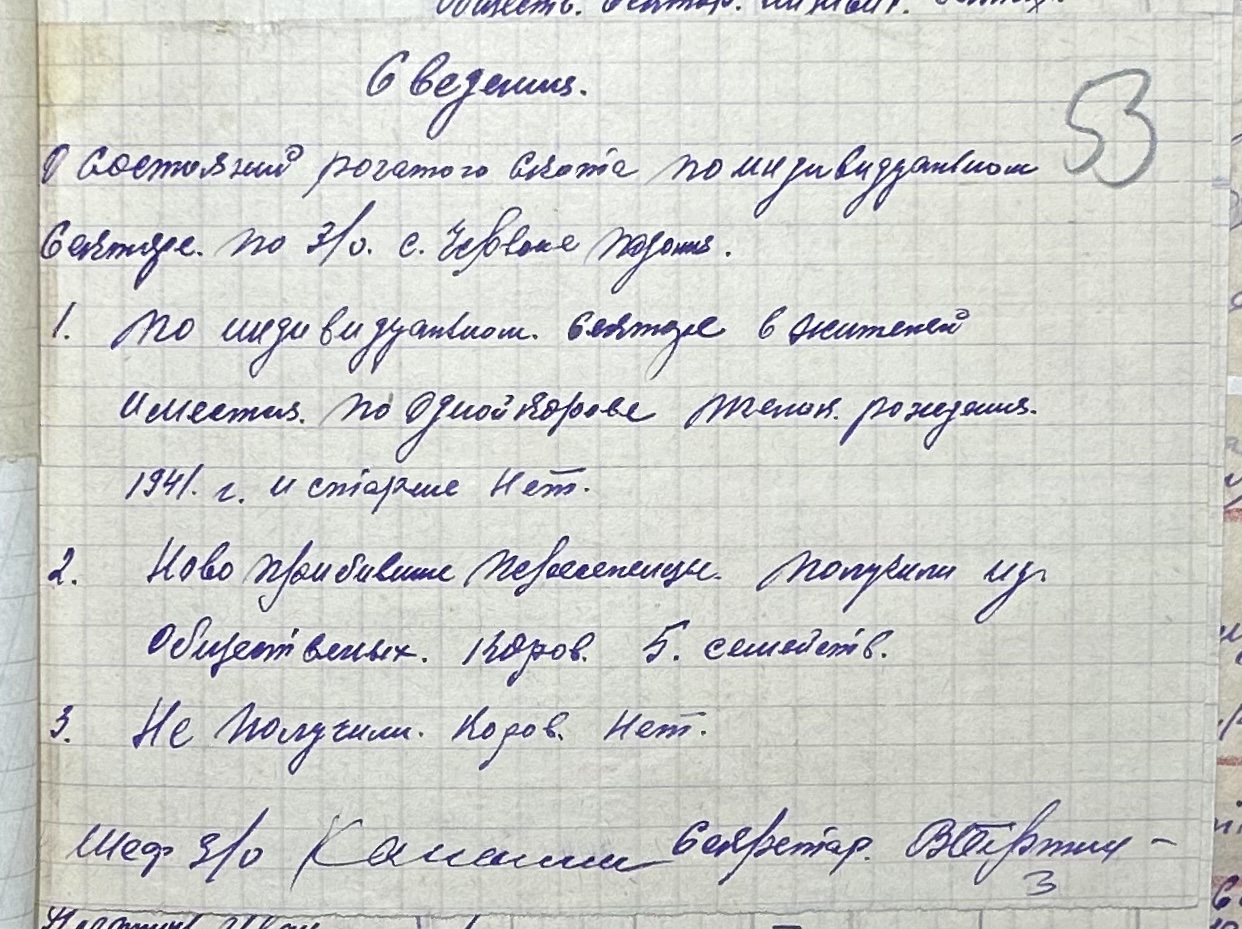 Сведения.
53
О состояний рогатого скота по индивидуальном
секторе. по З/о. с. Червоне
1. По индивидуальном. секторе в жителей
имеется. по одной корове телок. рождения.
1941. г. и старше Нет.
2. Ново прибившие переселенци. получили из
Общественых. коров. 5. семейств.
3. Не получили. Коров. Нет.
Шеф З/о Секретар.
3